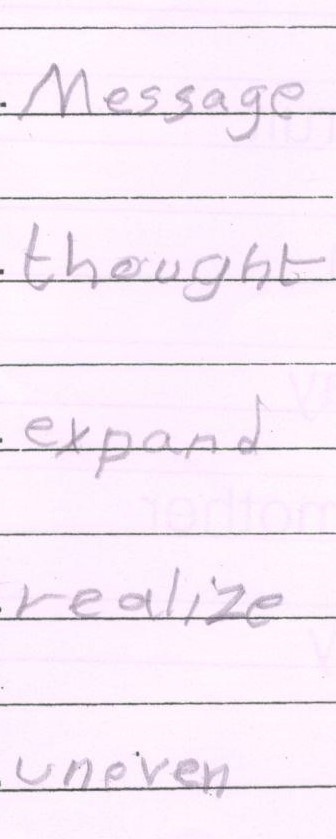 Message
thought
expand
realize
uneven